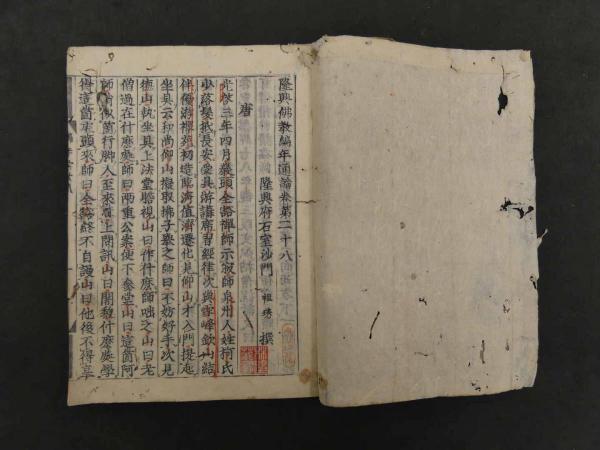 隆興佛教編年通論卷第二十八
隆興府石室沙門 祖琇 撰
唐
光啓三年四月巖頭全豁禪師示寂師泉州人姓柯氏
少落髮抵長安受具游講席習經律次與雪峰欽山結
伴優游禪苑初造臨濟值濟遷化見仰山才入門提起
坐具云和尚仰山擬取拂子巖之師曰不妨好手次見
德山執坐具上法堂瞻視山曰作什麼師咄之山曰老
僧過在什麼處師曰兩重公案便下參堂山曰這箇阿
師稍似箇行腳人至來日上問訊山曰闍黎什麼處學
得這箇虛頭來師曰全豁終不自謾山曰他後不得辜